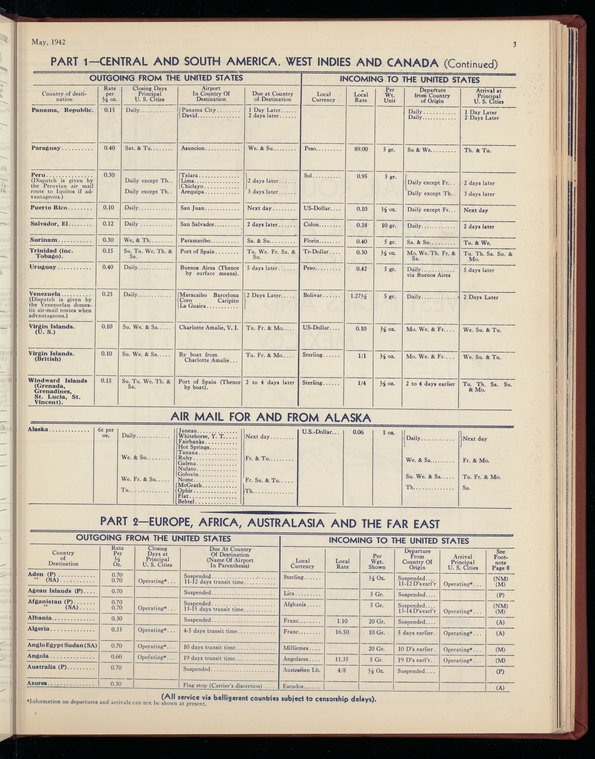 May, 1942
3
PART 1—CENTRAL AND SOUTH AMERICA, WEST INDIES AND CANADA (Continued)
OUTGOING FROM THE UNITED STATES INCOMING TO THE UNITED STATES
Country of desti-nation Rate per ½ oz. Closing Days Principal U. S. Cities Airport In Country Of Destination Due at Country of Destination Local Currency Local Rate Per Wt. Unit Departure from Country of Origin Arrival at Principal U. S. Cities
Panama, Republic. 0.15 Daily Panama City 1 Day Later Daily 1 Day Later
David 2 days later Daily 2 Days Later
Paraguay 0.40 Sat. & Tu. Asuncion We. & Su. Peso 89.00 5 gr. Su & We. Th. & Tu.
Peru 0.30 Talara Sol 0.95 5 gr.
(Dispatch is given by Daily except Th. Lima 2 days later Daily except Fr. 2 days later
the Peruvian air mail Chiclayo
route to Iquitos if ad- Daily except Th. Arequipa 3 days later Daily except Th. 3 days later
vantageous.)
Puerto Rico 0.10 Daily San Juan Next day US-Dollar 0.10 ½ oz. Daily except Fr. Next day
Salvador, El 0.12 Daily San Salvador 2 days later Colon 0.38 10 gr. Daily 2 days later
Surinam 0.30 We. & Th. Paramaribo Sa. & Su. Florin 0.40 5 gr. Sa. & Su. Tu. & We.
Trinidad (inc. 0.15 Su. Tu. We. Th. & Port of Spain Tu. We. Fr. Sa. & Tr-Dollar 0.30 ½ oz. Mo. We. Th. Fr. & Tu. Th. Sa. Su. &
Tobago). Sa. Su. Sa. Mo.
Uruguay 0.40 Daily Buenos Aires (Thence 5 days later Peso 0.42 5 gr. Daily 5 days later
by surface means). via Buenos Aires
Venezuela 0.25 Daily Maracaibo Barcelona 2 Days Later Bolivar 1.27½ 5 gr. Daily 2 Days Later
(Dispatch is given by Coro Caripito
the Venezuelan domes- La Guaira
tic air-mail routes when
advantageous.)
Virgin Islands. 0.10 Su. We. & Sa. Charlotte Amalie, V. I. Tu. Fr. & Mo. US-Dollar 0.10 ½ oz. Mo. We. & Fr. We. Su. & Tu.
(U. S.)
Virgin Islands. 0.10 Su. We. & Sa. By boat from Tu. Fr. & Mo. Sterling 1/1 ½ oz. Mo. We. & Fr. We. Su. & Tu.
(British) Charlotte Amalie
Windward Islands 0.15 Su. Tu. We. Th. & Port of Spain (Thence 2 to 4 days later Sterling 1/4 ½ oz. 2 to 4 days earlier Tu. Th. Sa. Su.
(Grenada, Sa. by boat). & Mo.
Grenadines,
St. Lucia, St.
Vincent).
AIR MAIL FOR AND FROM ALASKA
Alaska 6c per oz. Juneau U.S.-Dollar 0.06 1 oz.
Daily Whitehorse, Y. T. Next day Daily Next day
Fairbanks
Hot Springs
Tanana
We. & Su. Ruby Fr. & Tu. We. & Sa. Fr. & Mo.
Galena
Nulato
Golovin
We. Fr. & Su. Nome Fr. Su. & Tu. Su. We. & Sa. Tu. Fr. & Mo.
McGrath
Tu. Ophir Th. Th. Sa.
Flat
Bethel
PART 2—EUROPE, AFRICA, AUSTRALASIA AND THE FAR EAST
OUTGOING FROM THE UNITED STATES INCOMING TO THE UNITED STATES
Country of Destination Rate Per ½ Oz. Closing Days at Principal U. S. Cities Due At Country Of Destination (Name Of Airport In Parenthesis) Local Currency Local Rate Per Wgt. Shown Departure From Country Of Origin Arrival Principal U. S. Cities See Foot-note Page 8
Aden (P) 0.70 Suspended Sterling ½ Oz. Suspended (NM)
" (SA) 0.70 Operating* 11-12 days transit time 11-12 D'searl'r Operating* (M)
Agean Islands (P) 0.70 Suspended Lira 5 Gr. Suspended (P)
Afganistan (P) 0.70 Suspended Afghania 5 Gr. Suspended (NM)
" (SA) 0.70 Operating* 13-15 days transit time 13-14 D'searl'r Operating* (M)
Albania 0.30 Suspended Franc 1.10 20 Gr. Suspended (A)
Algeria 0.33 Operating* 4-5 days transit time Franc 16.50 10 Gr. 5 days earlier Operating* (A)
Anglo Egypt Sudan (SA) 0.70 Operating* 10 days transit time Milliemes 20 Gr. 10 D's earlier Operating* (M)
Angola 0.60 Operating* 19 days transit time Angolares 11.35 5 Gr. 19 D's earl'r Operating* (M)
Australia (P) 0.70 Suspended Australian Lb. 4/8 ½ Oz. Suspended (P)
Azores 0.30 Flag stop (Carrier's discretion) Escudos (A)
(All service via belligerent countries subject to censorship delays).
*Information on departures and arrivals can not be shown at present.